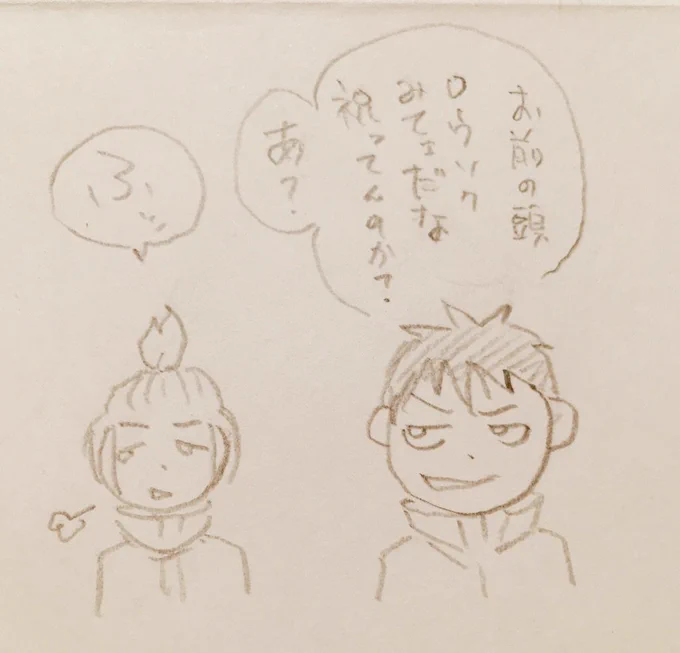 お前の頭
ロウソク
みてェだな
祝ってんのか？
あ？
ふッ